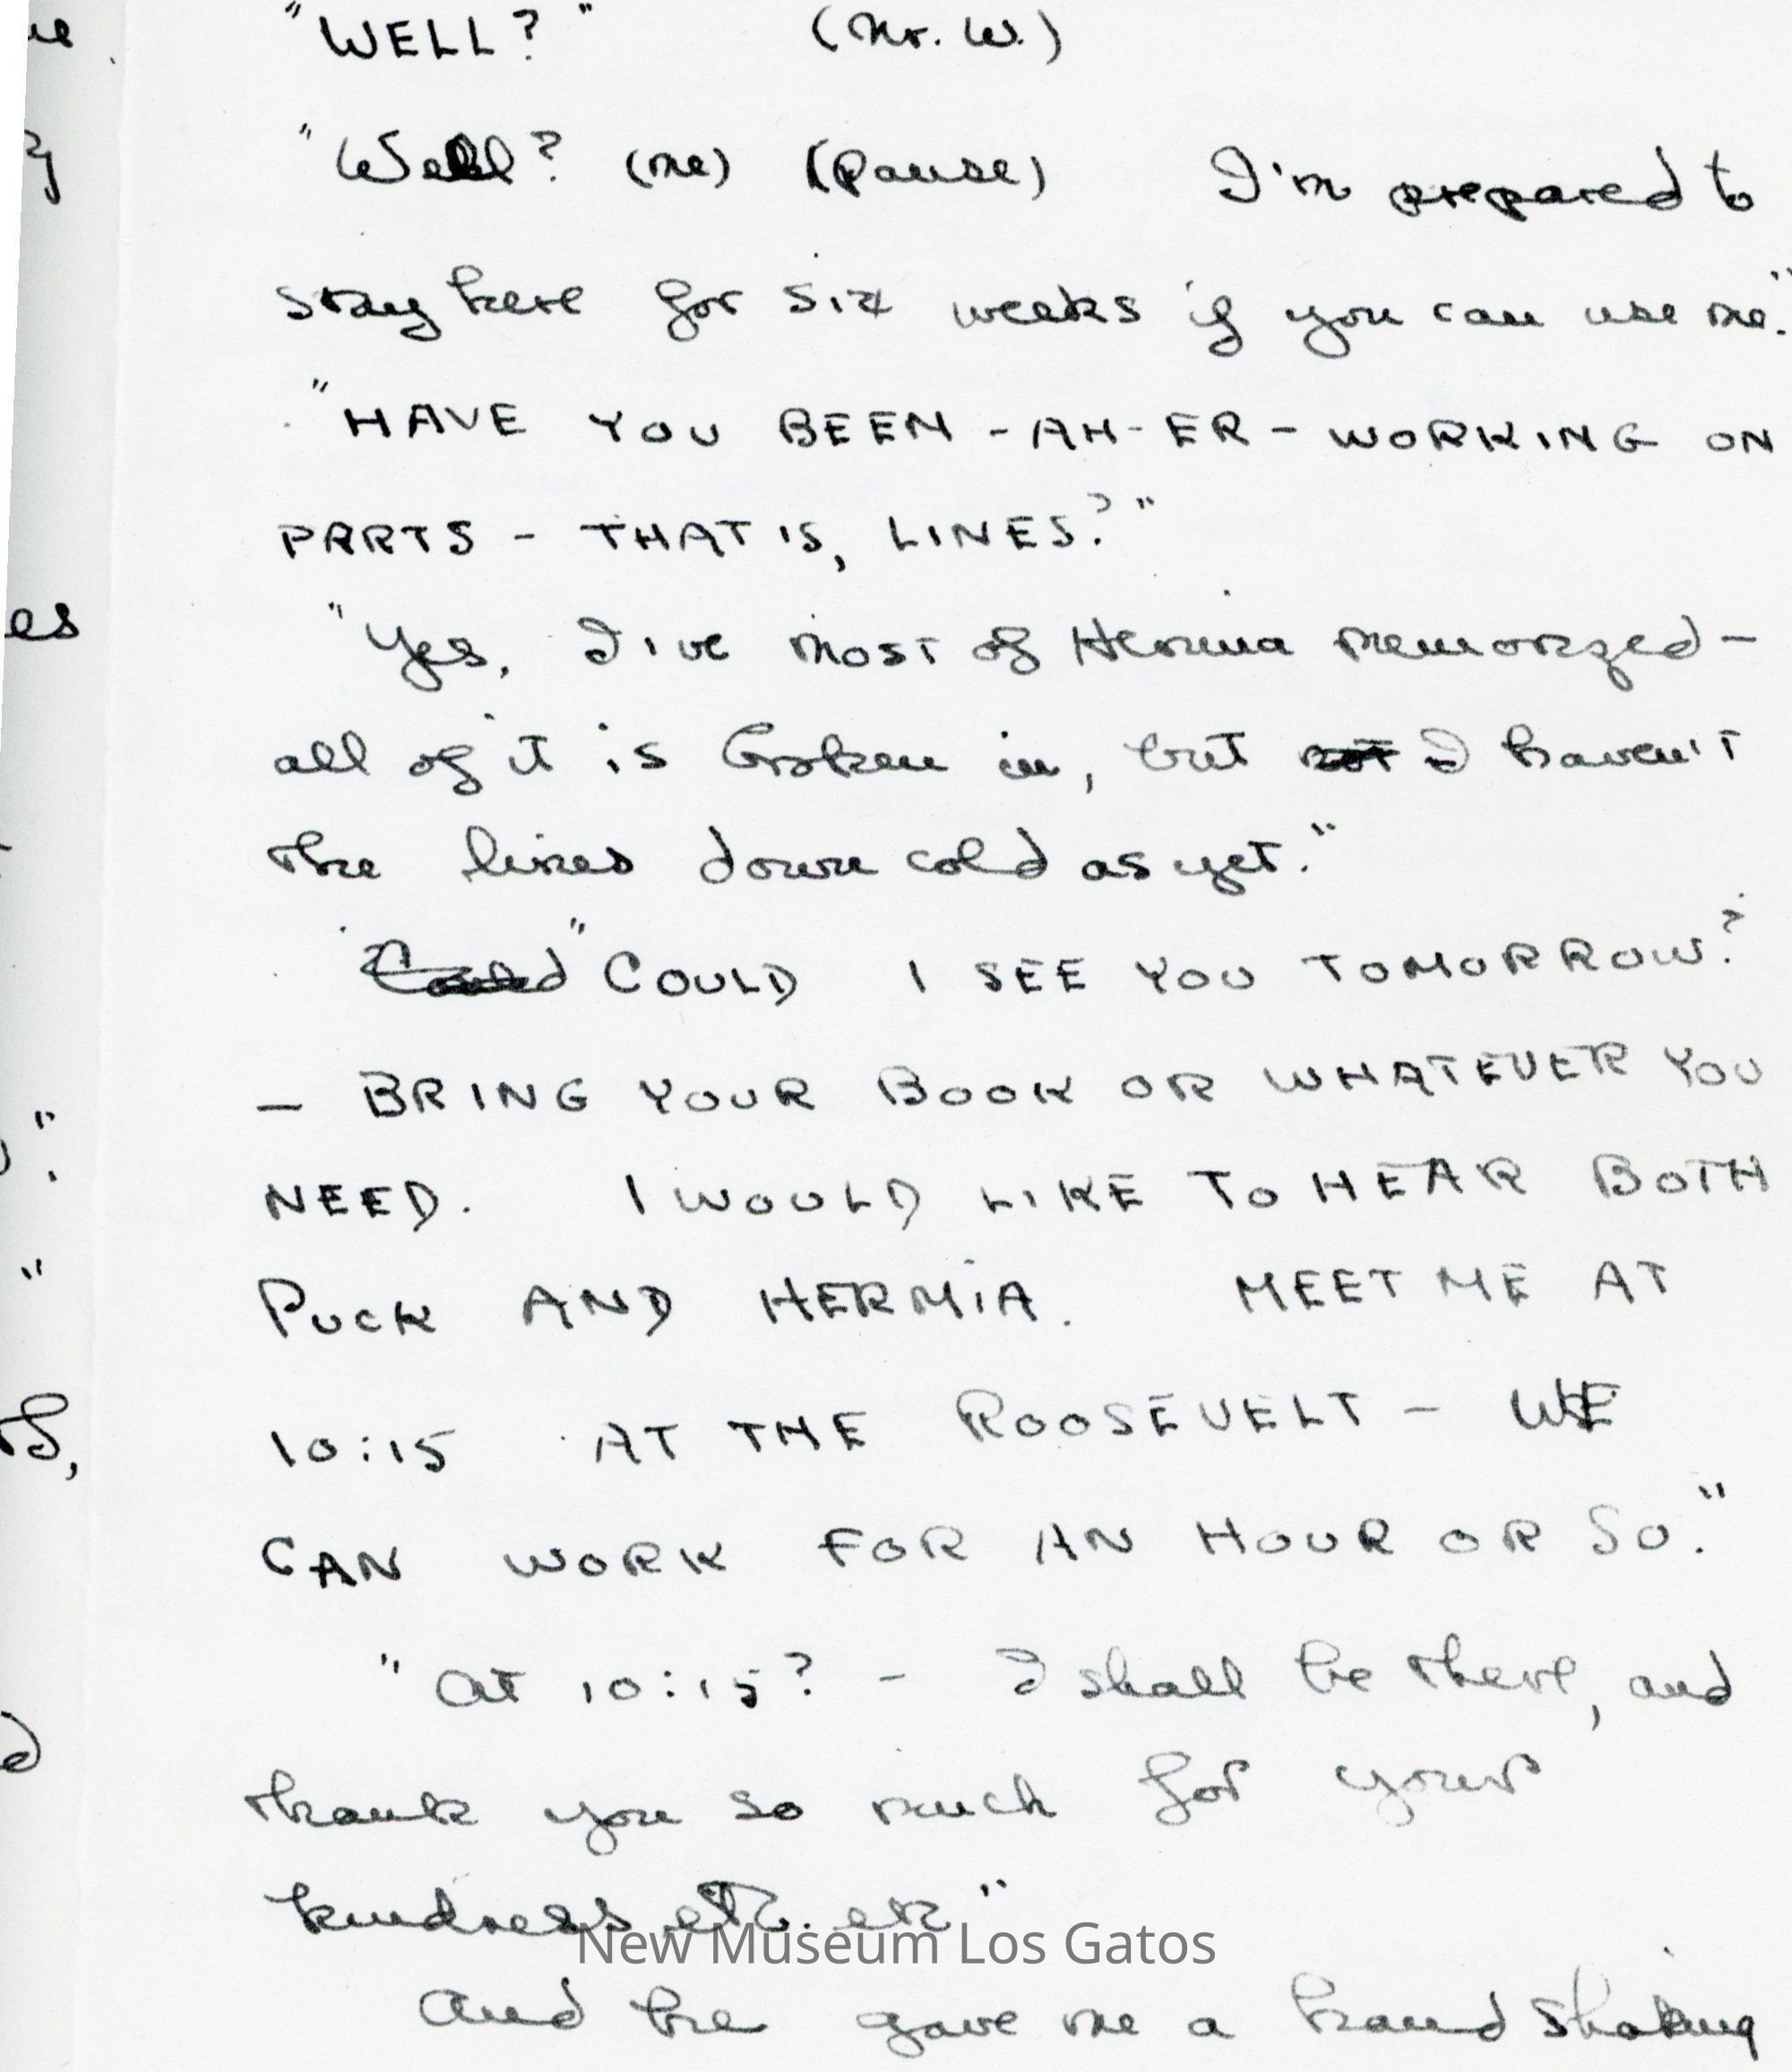 "WELL?" (Mr. W.)
"Well? (me) (Pause) I'm prepared to
stay here for six weeks if you can use me."
"HAVE YOU BEEN - AH - ER - WORKING ON
PARTS - THAT IS, LINES?"
"Yes, I've most of Hermia memorized -
all of it is broken in, but not I haven't
the lines down cold as yet."
Could "COULD I SEE YOU TOMORROW?
- BRING YOUR BOOK OR WHATEVER YOU
NEED. I WOULD LIKE TO HEAR BOTH
PUCK AND HERMIA. MEET ME AT
10:15 AT THE ROOSEVELT - WE
CAN WORK FOR AN HOUR OR SO."
"At 10:15? - I shall be there, and
thank you so much for your
kindness etc. etc"
New Museum Los Gatos
And he gave me a hand shaking